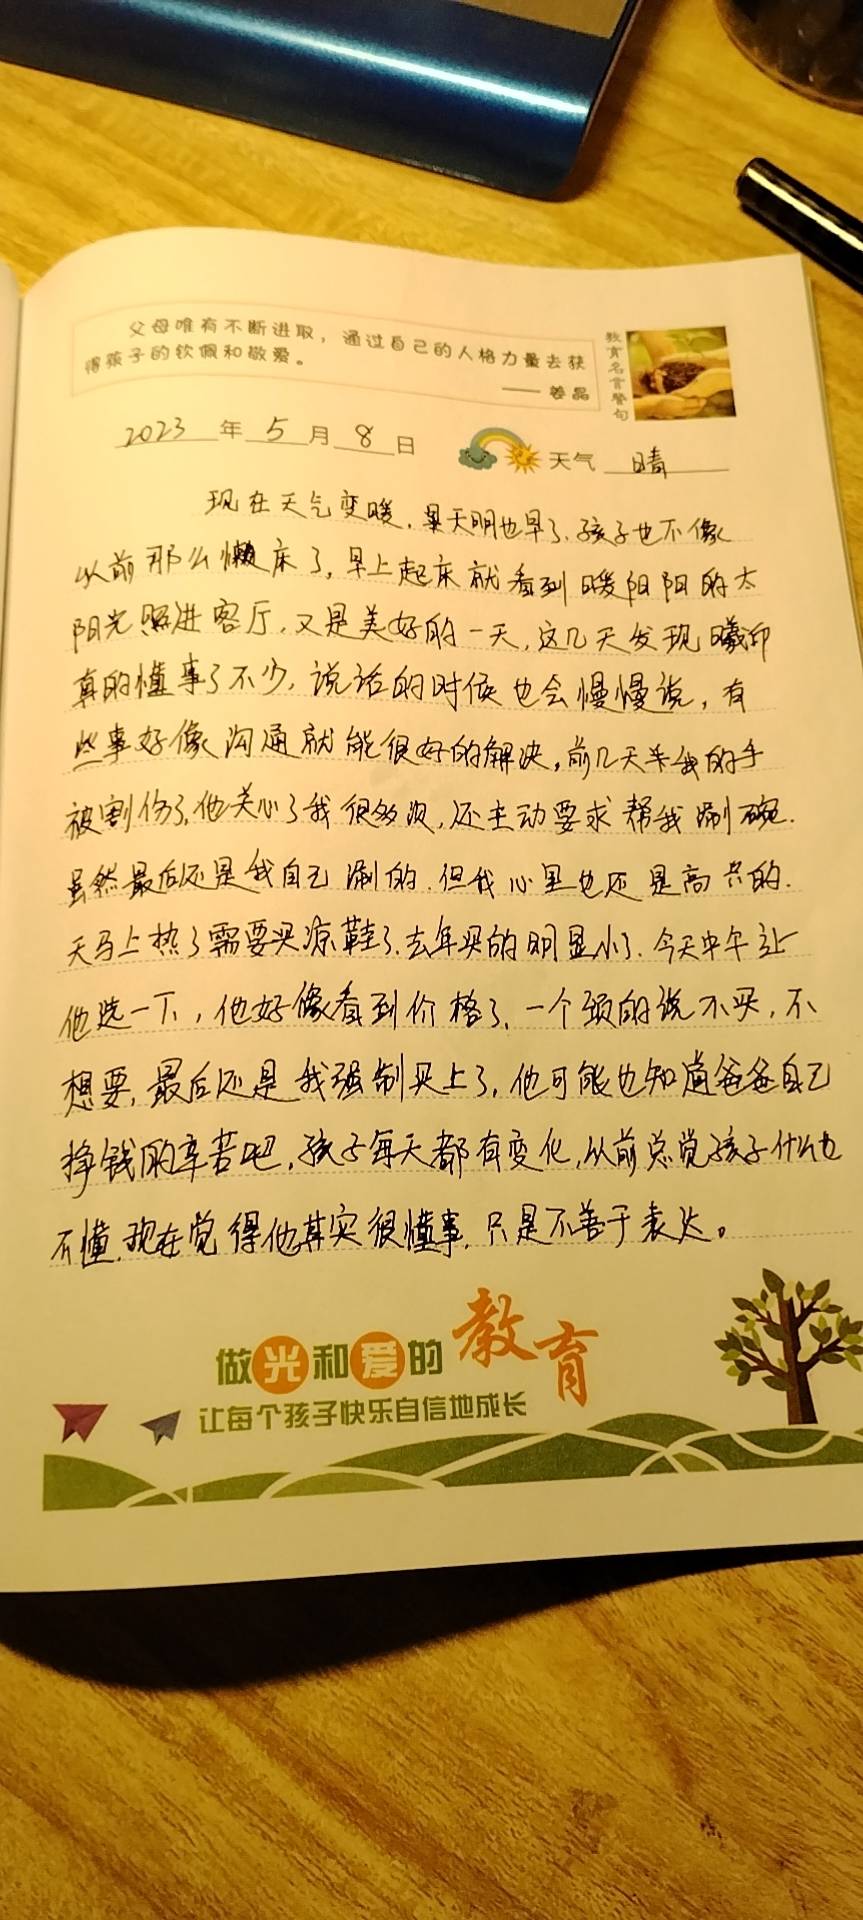 父母唯有不断进取，通过自己的人格力量去获
得孩子的钦佩和敬爱。
—— 姜晶
教育名言警句
2023 年 5 月 8 日 天气 晴
现在天气变暖，天明也早了，孩子也不像
以前那么懒床了，早上起床就看到暖阳阳的太
阳光照进客厅，又是美好的一天，这几天发现曦
真的懂事了不少，说话的时候也会慢慢说，有
些事好像沟通就能很好的解决，前几天我的手
被割伤了，他关心了我很多次，还主动要求帮我涮碗，
虽然最后还是我自己涮的，但我心里也还是高兴的，
天马上热了需要买凉鞋了，去年买的明显小了，今天中午让
他选一下，他好像看到价格了，一个颈的说不买，不
想要，最后还是我强制买上了，他可能也知道爸爸自己
挣钱的辛苦吧，孩子每天都有变化，从前总觉孩子什么也
不懂，现在觉得他其实很懂事，只是不善于表达。
做光和爱的教育
让每个孩子快乐自信地成长